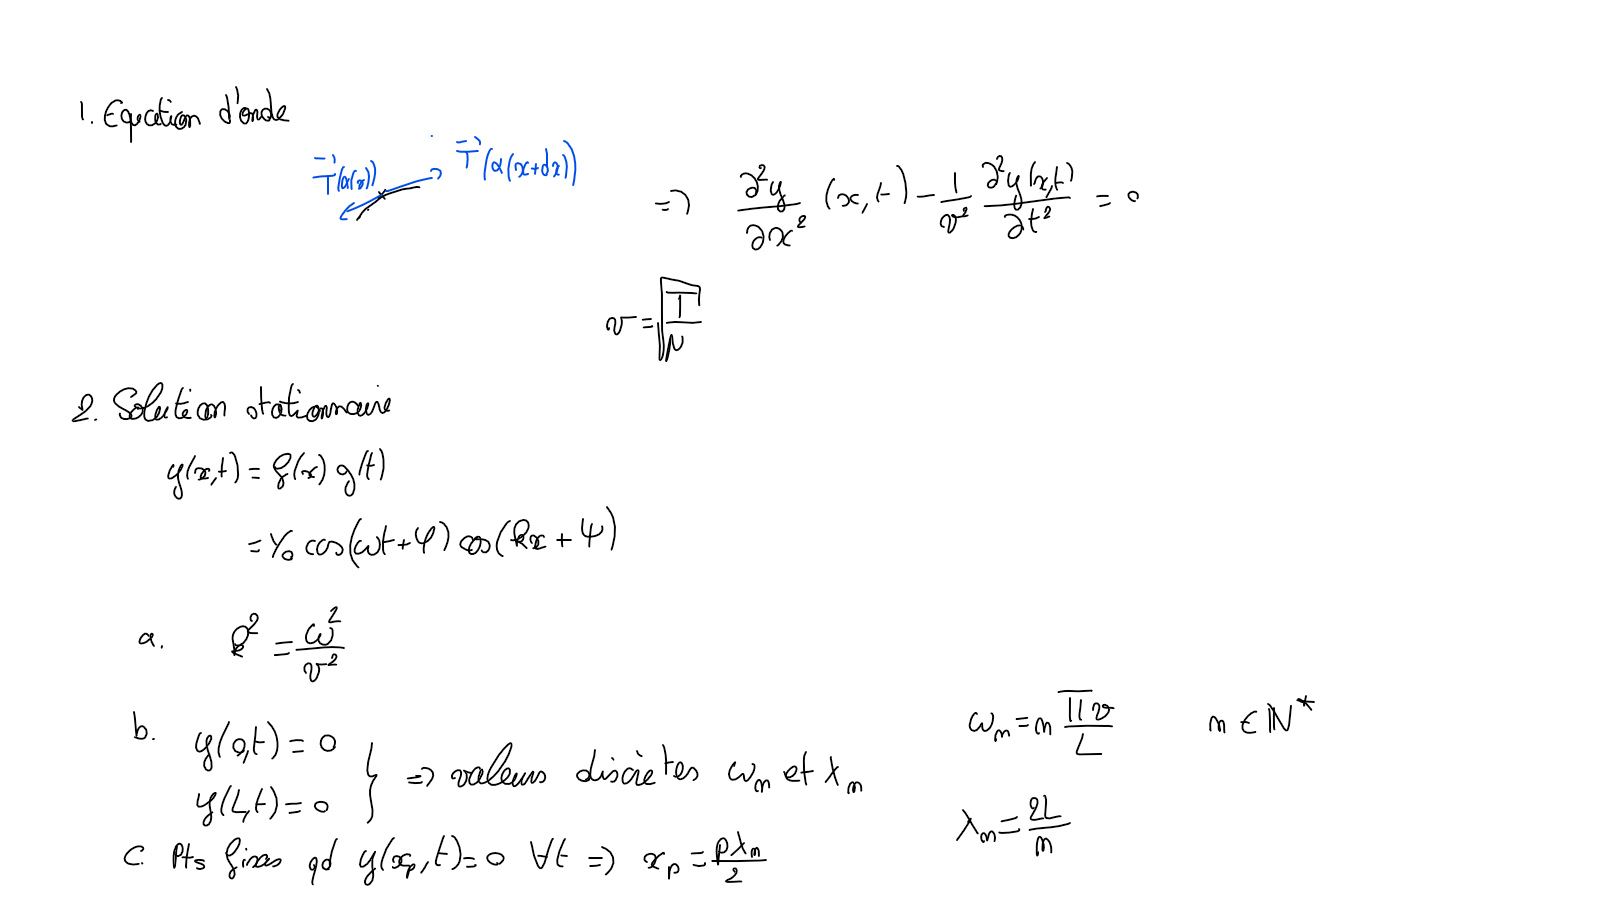 1. Equation d'onde
T⃗(α(x)) T⃗(α(x+dx))
=> ∂²y/∂x² (x,t) - 1/v² ∂²y(x,t)/∂t² = 0
v = √(T/μ)
2. Solution stationnaire
y(x,t) = f(x) g(t)
= Y₀ cos(ωt+φ) cos(kx + ψ)
a. k² = ω²/v²
b. y(0,t) = 0
y(L,t) = 0
} => valeurs discrètes ωn et λn
ωn = n πv/L n ∈ ℕ*
λn = 2L/n
c. Pts fixes qd y(xp,t) = 0 ∀t => xp = pλn/2